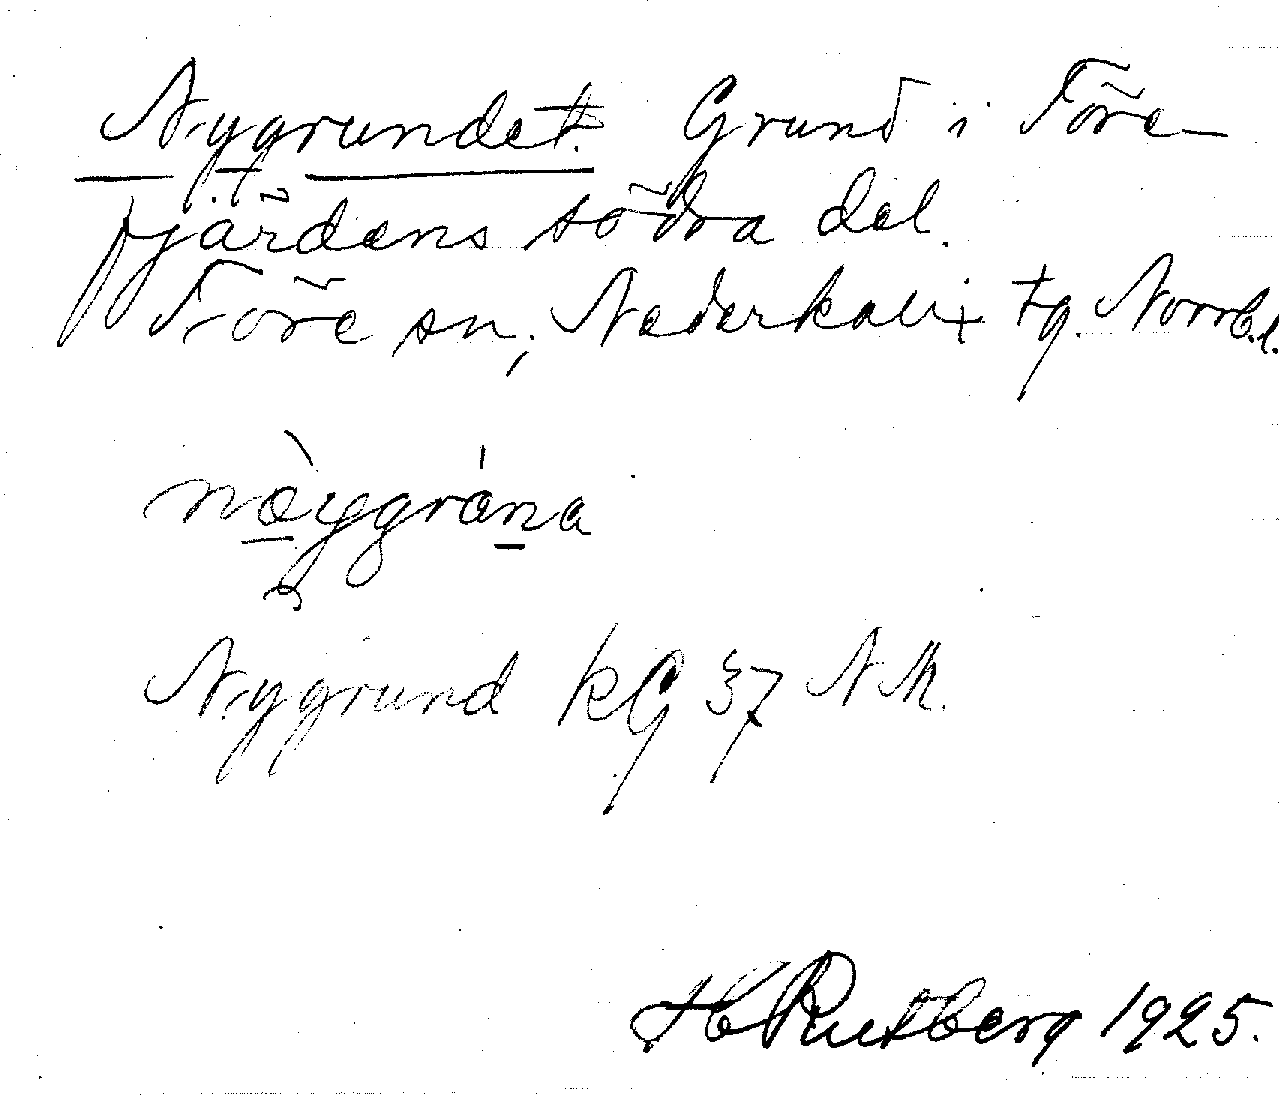 Nygrundet. Grund i Töre-
fjärdens södra del.
Töre sn, Nederkalix tg. Norrb.l.
nöyggràna
Nygrund KG 37 NM.
H Rutberg 1925.